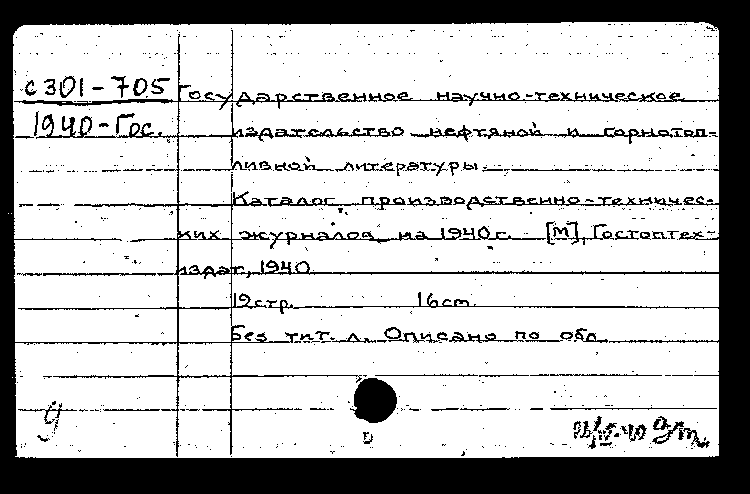 с301-705 Государственное научно-техническое
1940-Гос. издательство нефтяной и горнотоп-
ливной литературы.
Каталог производственно-техничес-
ких журналов на 1940г. [М], Гостоптех-
издат, 1940
12стр. 16см.
Без тит. л. Описано по обл.
9
D